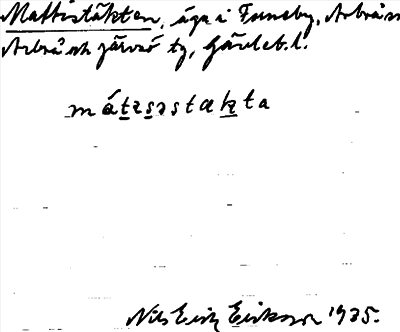 Mattistäkten, äga i Funeby, Arbrå sn
Arbrå och Järvsö tg, Gävleb. l.
mátɪsəstakta
Nils Erik Eriksson 1935.